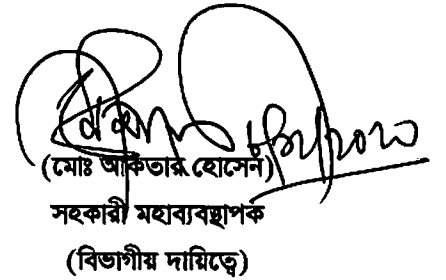 (মোঃ আকতার হোসেন)
সহকারী মহাব্যবস্থাপক
(বিভাগীয় দায়িত্বে)